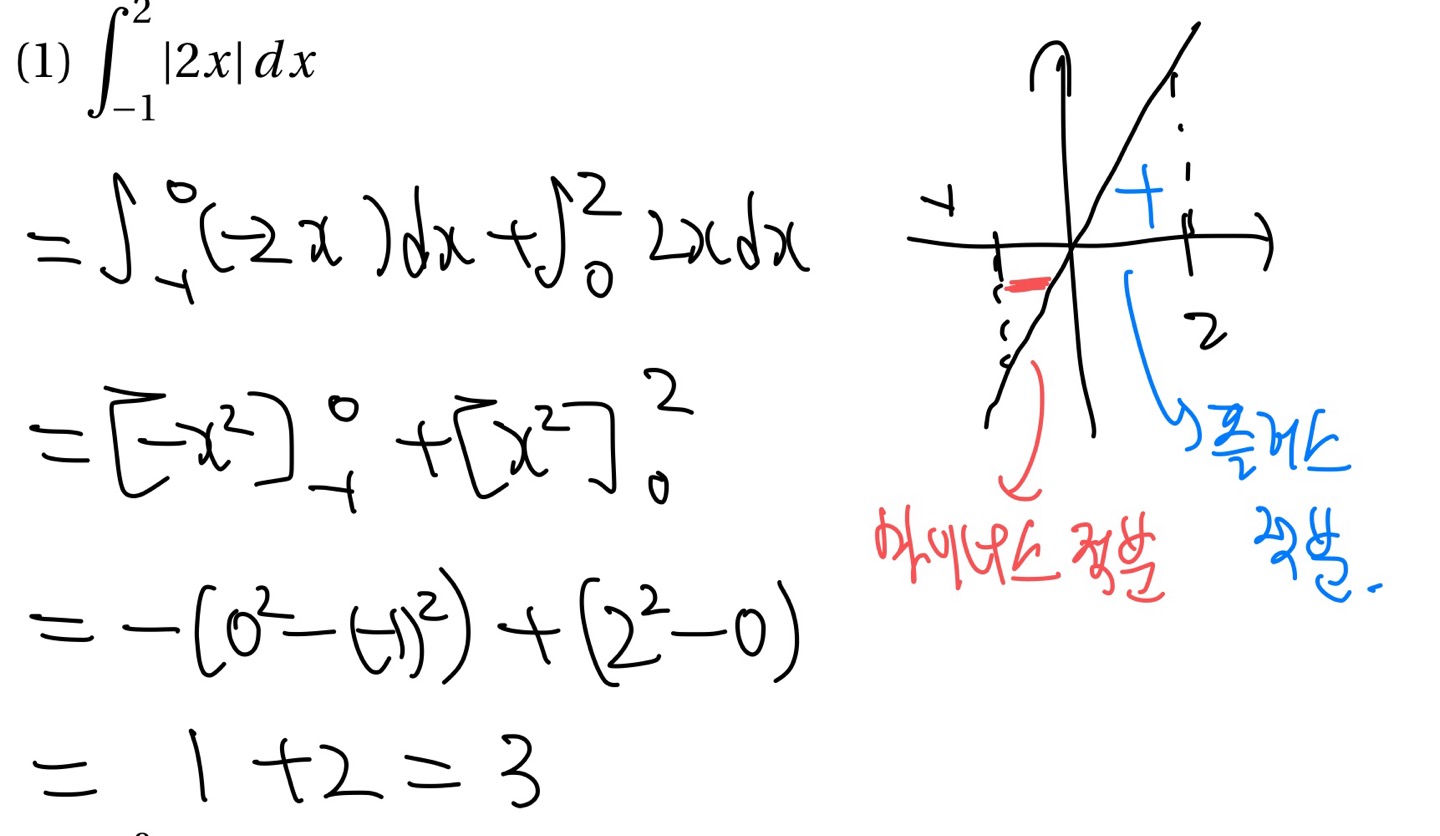 (1) ∫_{-1}^{2} |2x| dx
= ∫_{-1}^{0} (-2x) dx + ∫_{0}^{2} 2x dx
= [-x²]_{-1}^{0} + [x²]_{0}^{2}
= -(0² - (-1)²) + (2² - 0)
= 1 + 2 = 3
-1
+
2
플러스
적분.
마이너스 적분